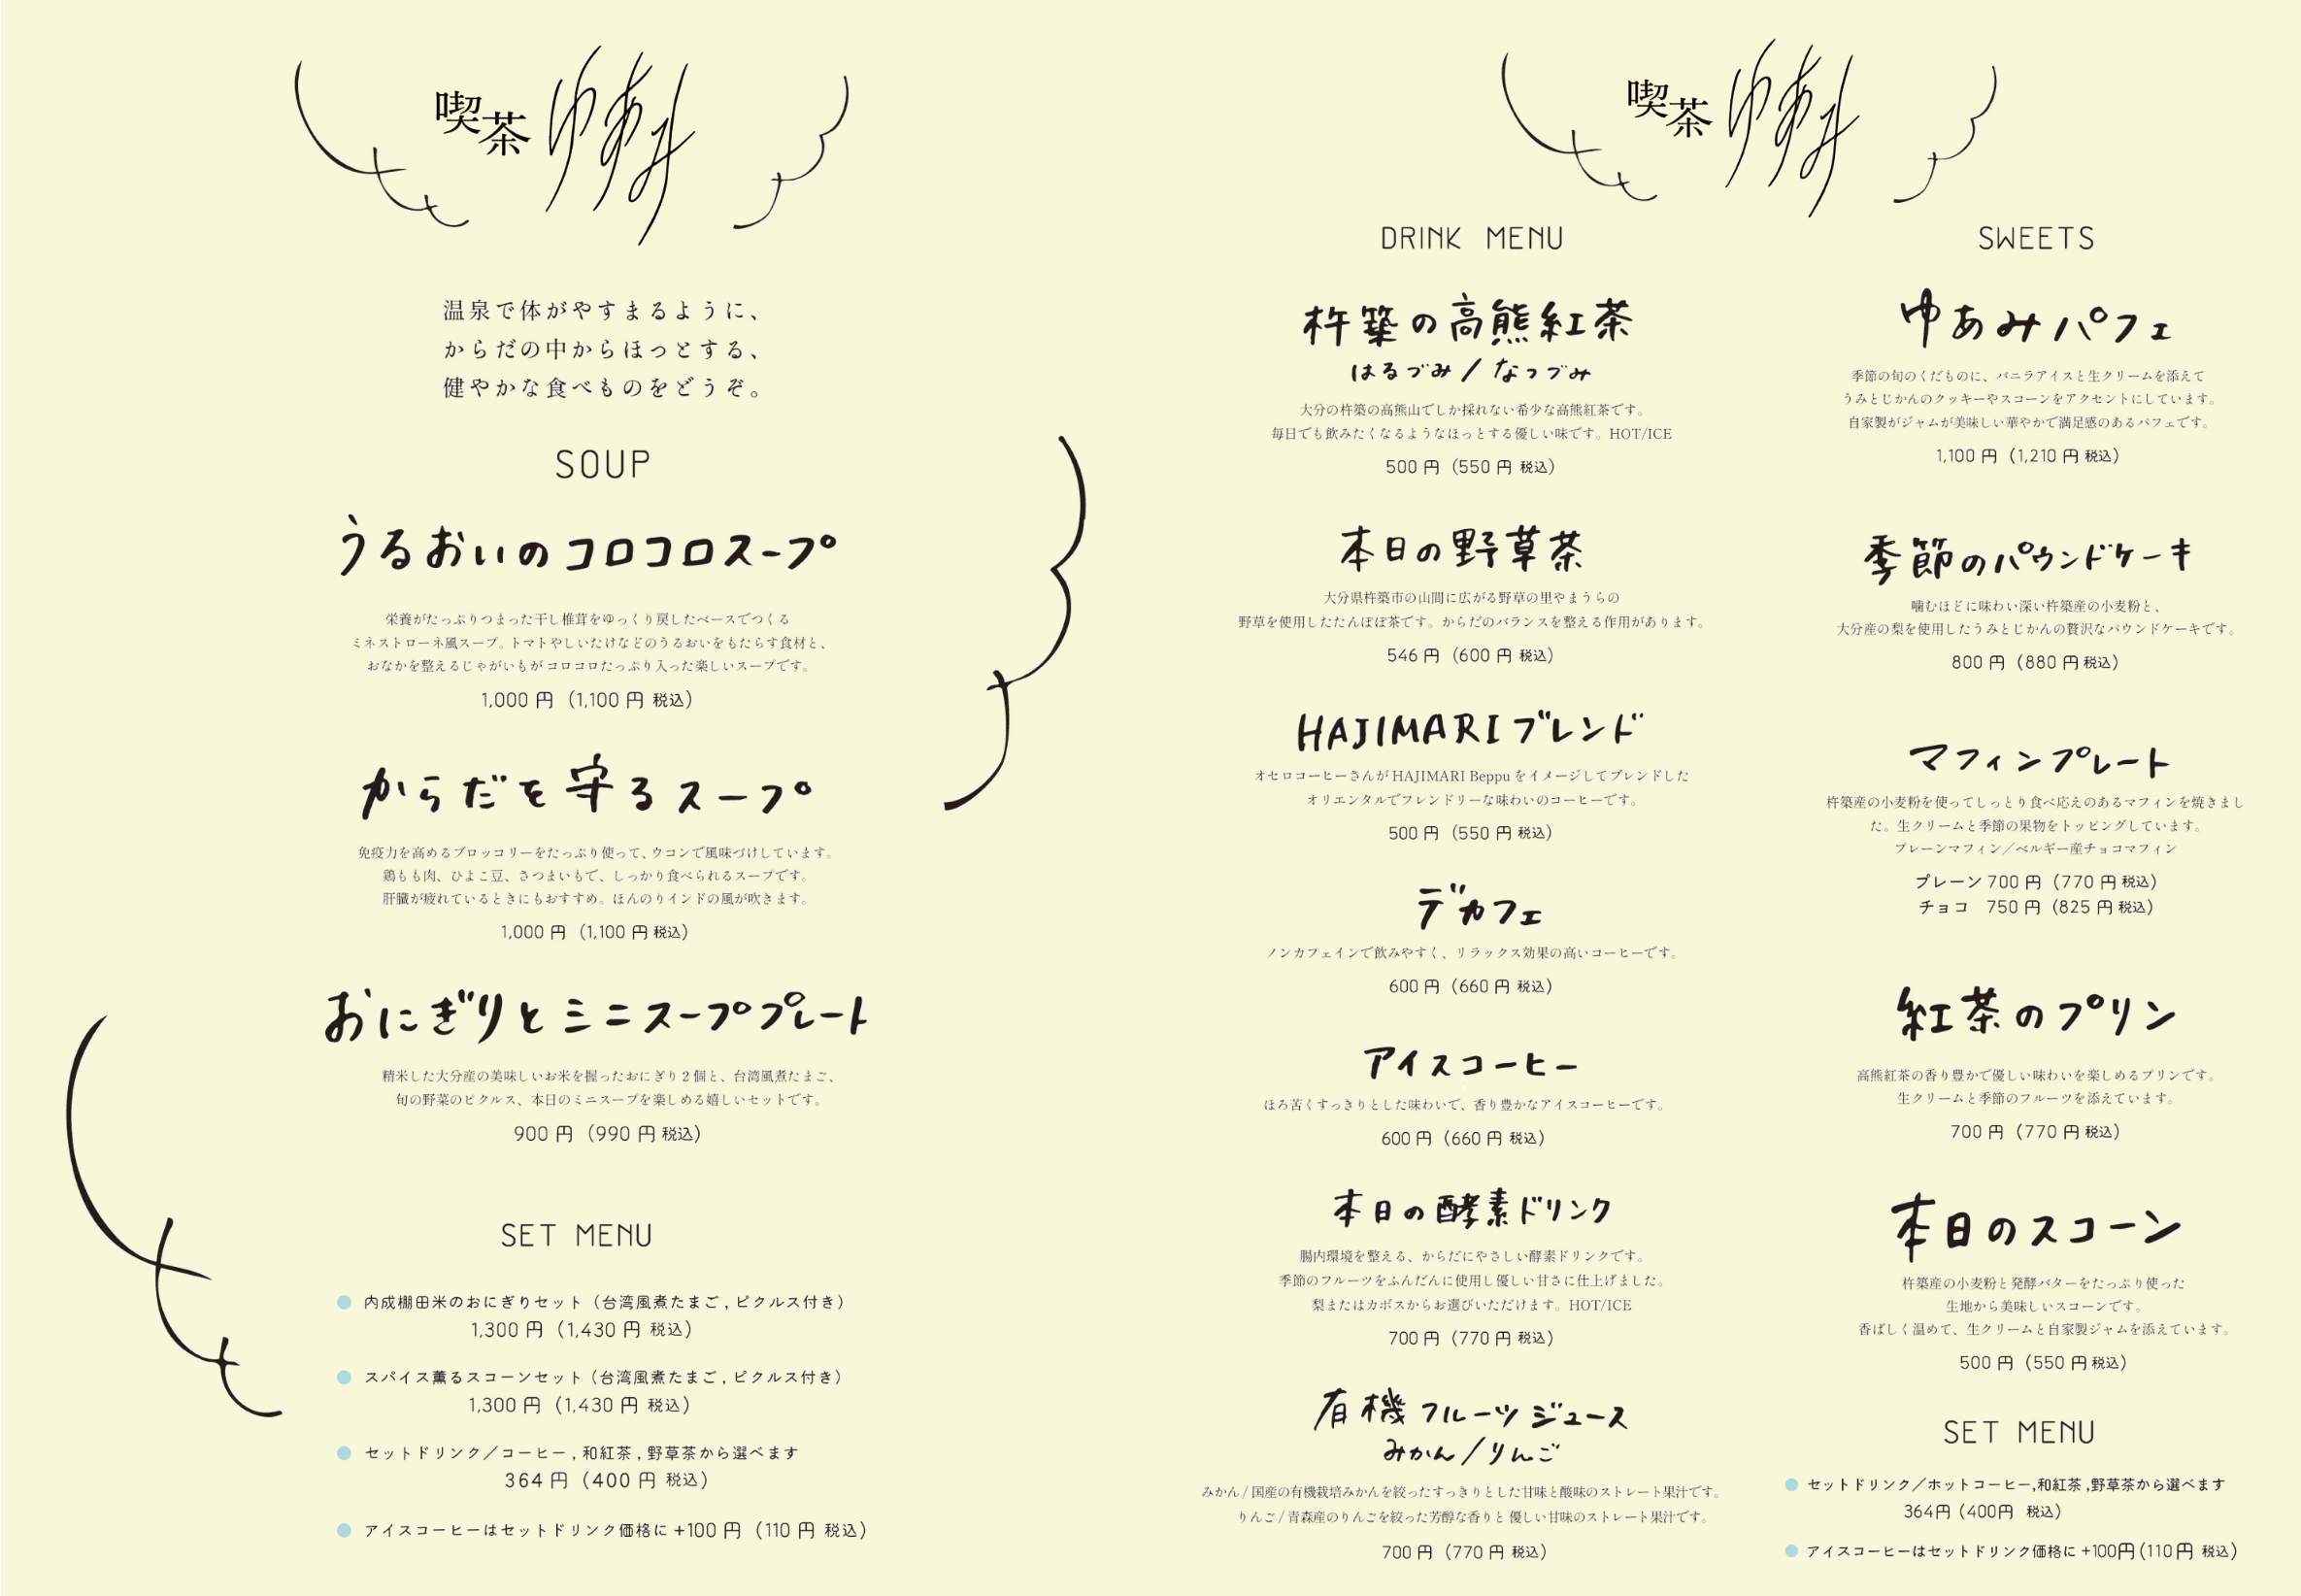 喫茶ゆあみ
温泉で体がやすまるように、
からだの中からほっとする、
健やかな食べものをどうぞ。
SOUP
うるおいのコロコロスープ
栄養がたっぷりつまった干し椎茸をゆっくり戻したベースでつくる
ミネストローネ風スープ。トマトやしいたけなどのうるおいをもたらす食材と、
おなかを整えるじゃがいもがコロコロたっぷり入った楽しいスープです。
1,000 円（1,100 円 税込）
からだを守るスープ
免疫力を高めるブロッコリーをたっぷり使って、ウコンで風味づけしています。
鶏もも肉、ひよこ豆、さつまいもで、しっかり食べられるスープです。
肝臓が疲れているときにもおすすめ。ほんのりインドの風が吹きます。
1,000 円（1,100 円 税込）
おにぎりとミニスーププレート
精米した大分産の美味しいお米を握ったおにぎり２個と、台湾風煮たまご、
旬の野菜のピクルス、本日のミニスープを楽しめる嬉しいセットです。
900 円（990 円 税込）
SET MENU
内成棚田米のおにぎりセット（台湾風煮たまご , ピクルス付き）
1,300 円（1,430 円 税込）
スパイス薫るスコーンセット（台湾風煮たまご , ピクルス付き）
1,300 円（1,430 円 税込）
セットドリンク／コーヒー , 和紅茶 , 野草茶から選べます
364 円（400 円 税込）
アイスコーヒーはセットドリンク価格に +100 円（110 円 税込）
喫茶ゆあみ
DRINK MENU
杵築の高熊紅茶
はるづみ / なつづみ
大分の杵築の高熊山でしか採れない希少な高熊紅茶です。
毎日でも飲みたくなるようなほっとする優しい味です。HOT/ICE
500 円（550 円 税込）
本日の野草茶
大分県杵築市の山間に広がる野草の里やまうらの
野草を使用したたんぽぽ茶です。からだのバランスを整える作用があります。
546 円（600 円 税込）
HAJIMARI ブレンド
オセロコーヒーさんが HAJIMARI Beppu をイメージしてブレンドした
オリエンタルでフレンドリーな味わいのコーヒーです。
500 円（550 円 税込）
デカフェ
ノンカフェインで飲みやすく、リラックス効果の高いコーヒーです。
600 円（660 円 税込）
アイスコーヒー
ほろ苦くすっきりとした味わいで、香り豊かなアイスコーヒーです。
600 円（660 円 税込）
本日の酵素ドリンク
腸内環境を整える、からだにやさしい酵素ドリンクです。
季節のフルーツをふんだんに使用し優しい甘さに仕上げました。
梨またはカボスからお選びいただけます。HOT/ICE
700 円（770 円 税込）
有機フルーツジュース
みかん / りんご
みかん / 国産の有機栽培みかんを絞ったすっきりとした甘味と酸味のストレート果汁です。
りんご / 青森産のりんごを絞った芳醇な香りと 優しい甘味のストレート果汁です。
700 円（770 円 税込）
SWEETS
ゆあみパフェ
季節の旬のくだものに、バニラアイスと生クリームを添えて
うみとじかんのクッキーやスコーンをアクセントにしています。
自家製がジャムが美味しい華やかで満足感のあるパフェです。
1,100 円（1,210 円 税込）
季節のパウンドケーキ
噛むほどに味わい深い杵築産の小麦粉と、
大分産の梨を使用したうみとじかんの贅沢なパウンドケーキです。
800 円（880 円 税込）
マフィンプレート
杵築産の小麦粉を使ってしっとり食べ応えのあるマフィンを焼きまし
た。生クリームと季節の果物をトッピングしています。
プレーンマフィン／ベルギー産チョコマフィン
プレーン 700 円（770 円 税込）
チョコ　750 円（825 円 税込）
紅茶のプリン
高熊紅茶の香り豊かで優しい味わいを楽しめるプリンです。
生クリームと季節のフルーツを添えています。
700 円（770 円 税込）
本日のスコーン
杵築産の小麦粉と発酵バターをたっぷり使った
生地から美味しいスコーンです。
香ばしく温めて、生クリームと自家製ジャムを添えています。
500 円（550 円 税込）
SET MENU
セットドリンク／ホットコーヒー,和紅茶 ,野草茶から選べます
364円（400円 税込）
アイスコーヒーはセットドリンク価格に +100円（110 円 税込）